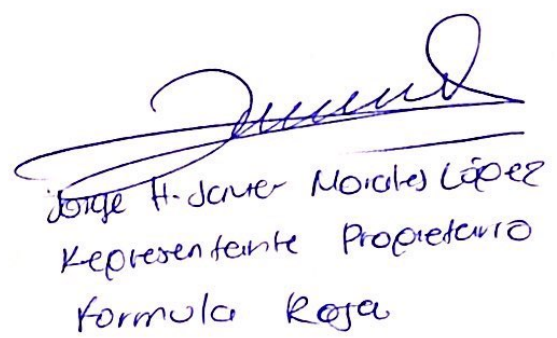 Jorge H. Javier Morales López
Representante Propietario
Formula Roja